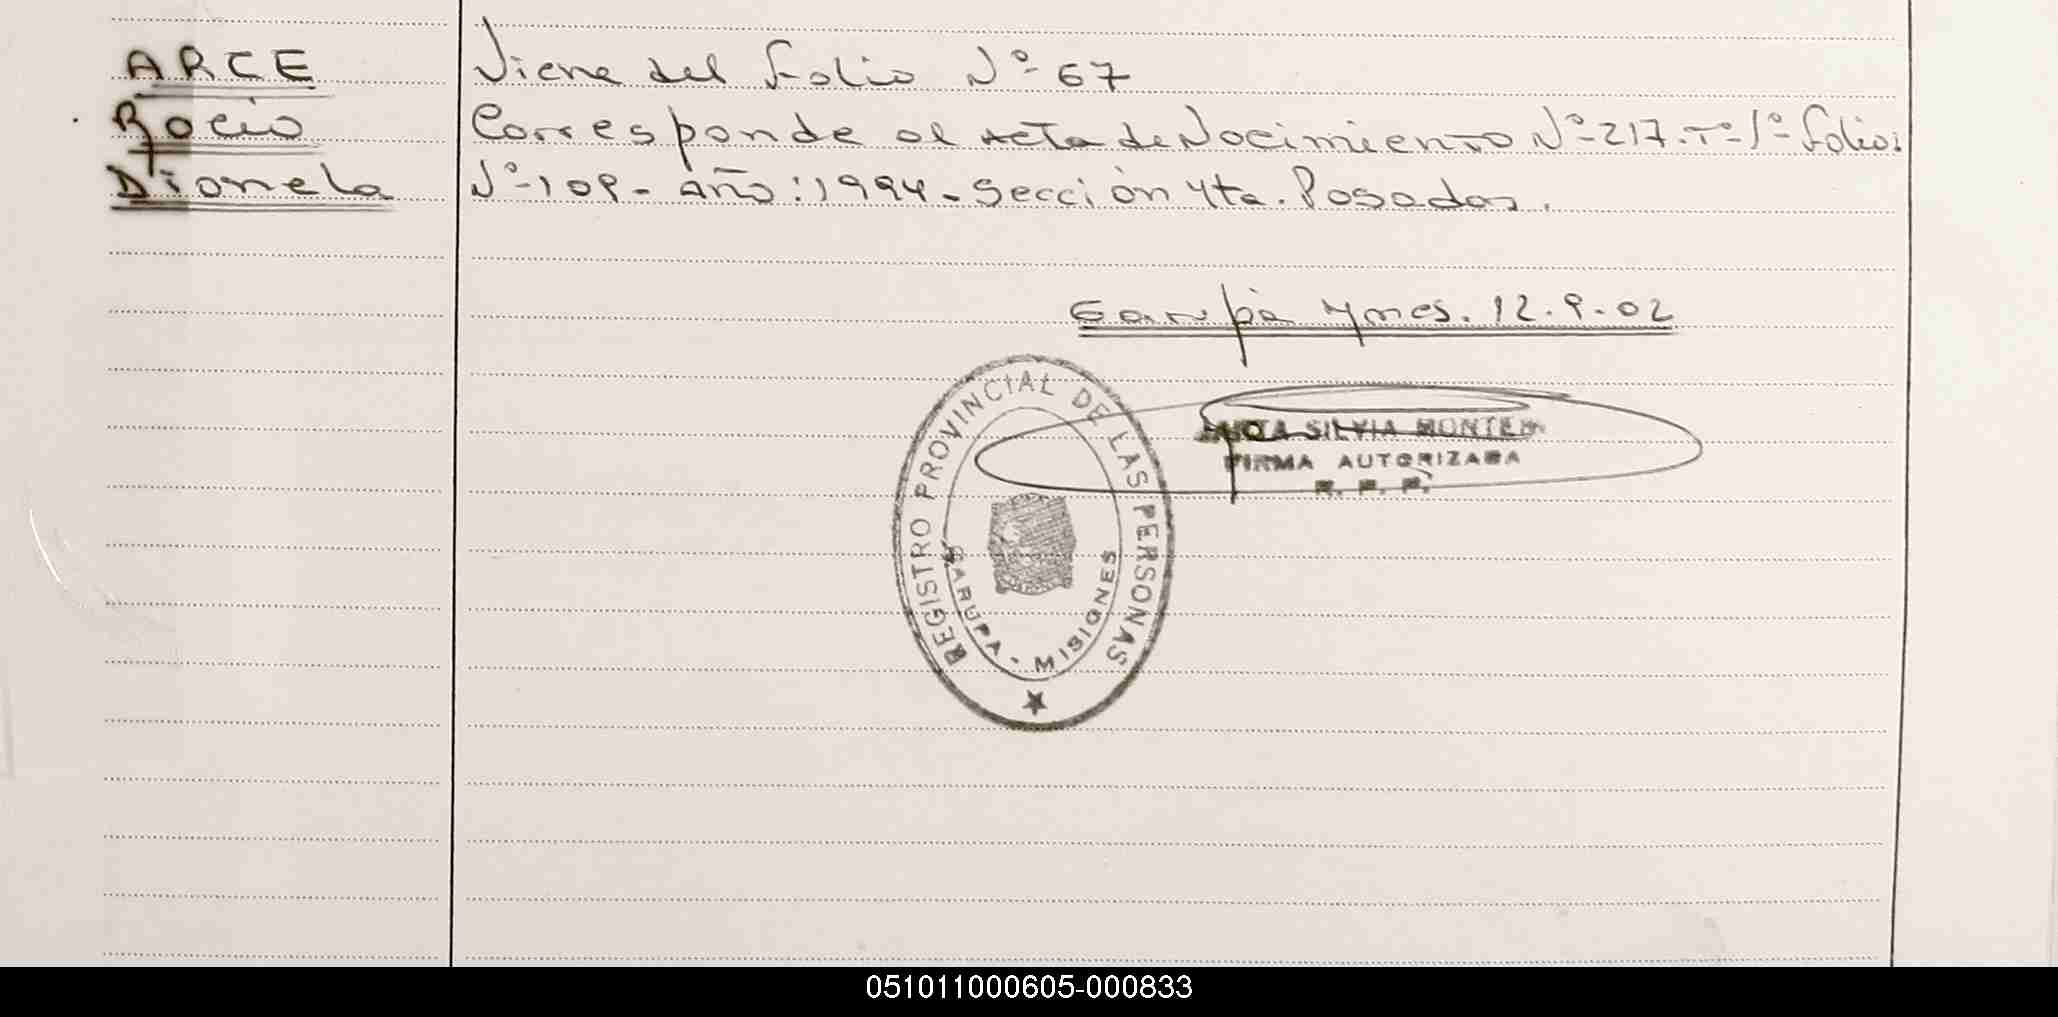 ARCE
Rocio
Dionela
Viene del folio Nº 67
Corresponde al acta de Nacimiento Nº 217. Tº 1º folio:
Nº 109 - año: 1994 - Sección 4ta. Posadas.
Garupá Mnes. 12.9.02
SILVIA
FIRMA AUTORIZADA
R. P. P.
REGISTRO PROVINCIAL DE LAS PERSONAS
GARUPA - MISIONES
051011000605-000833